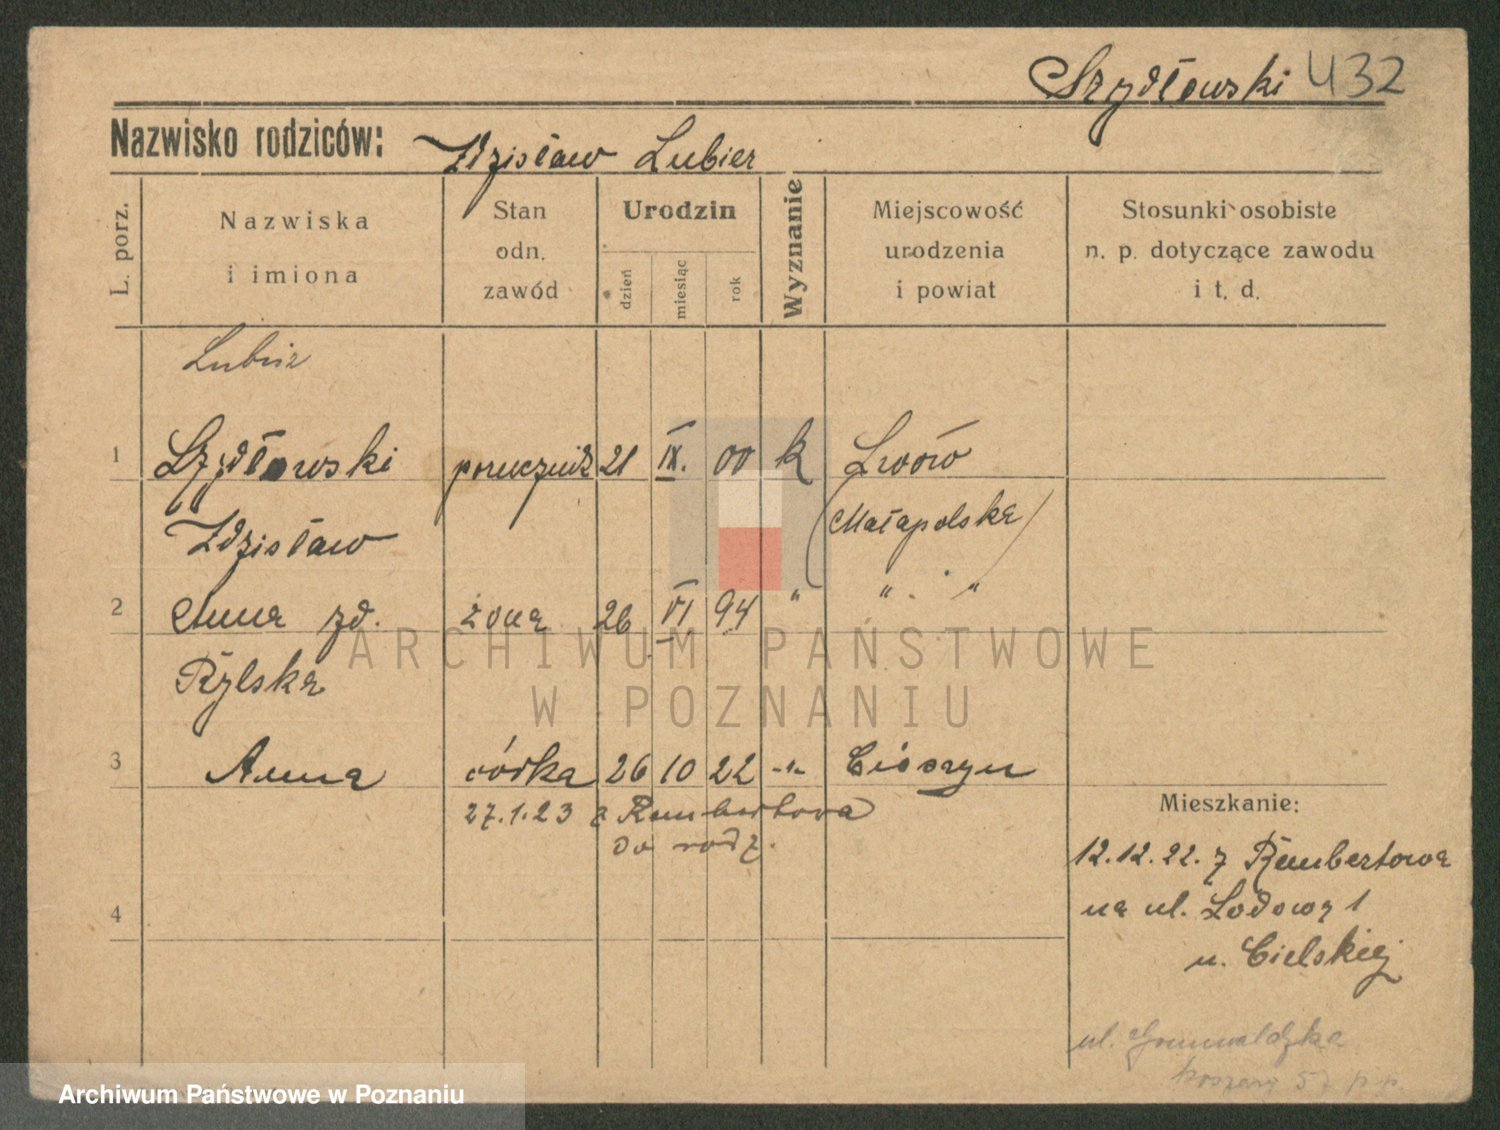 Szydłowski 432
Nazwisko rodziców: Zdzisław Lubicz
L. porz.
Nazwiska i imiona
Stan odn. zawód
Urodzin
dzień
miesiąc
rok
Wyznanie
Miejscowość urodzenia i powiat
Stosunki osobiste n. p. dotyczące zawodu i t. d.
Lubicz
1 Szydłowski porucznik 21 IX. 00 k Lwów
Zdzisław (Małapolska)
2 Anna zd. żona 26 VI 94 " " . "
Rylska
3 Anna córka 26 10 22 -"- Cieszyn
27.1.23 z Rembertowa
do rodz.
4
Mieszkanie:
12.12.22. z Rembertowa
na ul. Lodową 1
u. Cielskiej
ul. Grunwaldzka
koszary 57 p.p.
ARCHIWUM PAŃSTWOWE
W POZNANIU
Archiwum Państwowe w Poznaniu